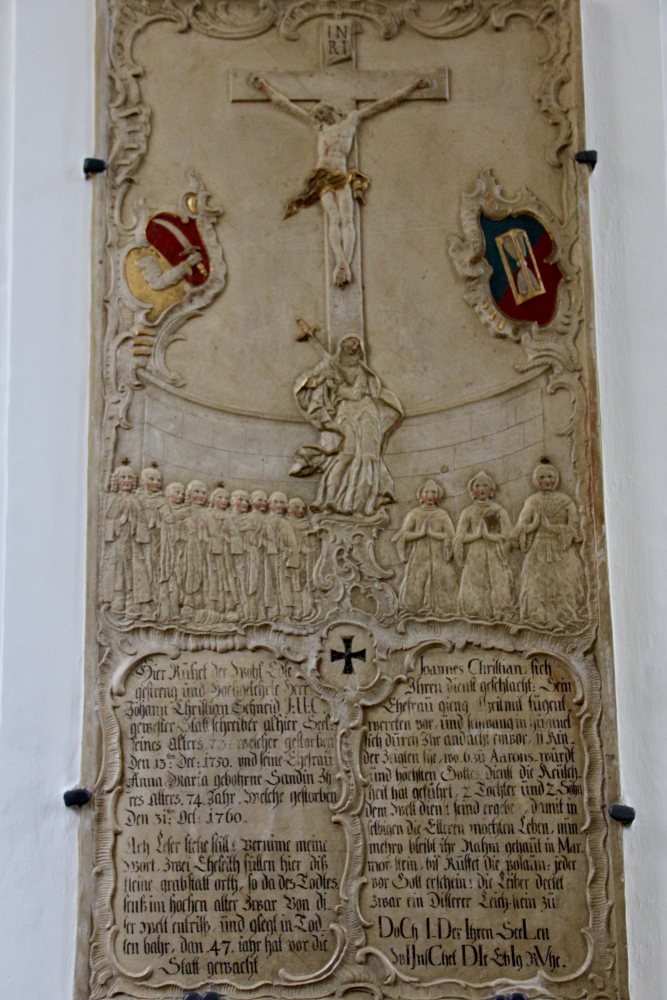 INRI
Hier Ruhet der Wohl Edle
gestreng und Hochgelehrte Herr
Johann Christian Schneid, I.U.C.
gewester Statt schreiber alhier Seel:
seines Alters 73: welcher gestorben
Den 13ten Dec: 1750. und seine Ehefrau
Anna Maria gebohrne Sandin Ih
res Alters 74 Jahr, Welche gestorben
Den 31ten Oct. 1760.
Ach Leser stehe still: vernime meine
Wort, Zwei Eheleith füllen hier diß
kleine grabstatt orth, so da des Todtes
senß im hochen alter zwar Von di
ser Welt entrißt, und glegt in Tod
ten bahr, dan 47. jahr hat vor die
Statt gewacht
Joannes Christian sich
Ihren dienst geschlacht: Sein
Ehefrau gieng
vor, und
sich durch Ihr andacht empor, 11 Kin
der Zeigten ihr, wo 6. zu Aarons würdt
und höchsten Gottes dienst die Keisch
heit hat geführt, 2 Töchter und 2 Söhn
dem Welt dienst seind ergebe, damit in
selbigen die Elteren möchten Leben, nun
mehro bleibt ihr Nahm gehaut in Mar
mor stein, biß
vor Gott erscheint: die Leiber
zwar ein Leich stein zu
DoCh I.Der Ihren SeeLen
WIJnsChet DIe EwIg RVhe.